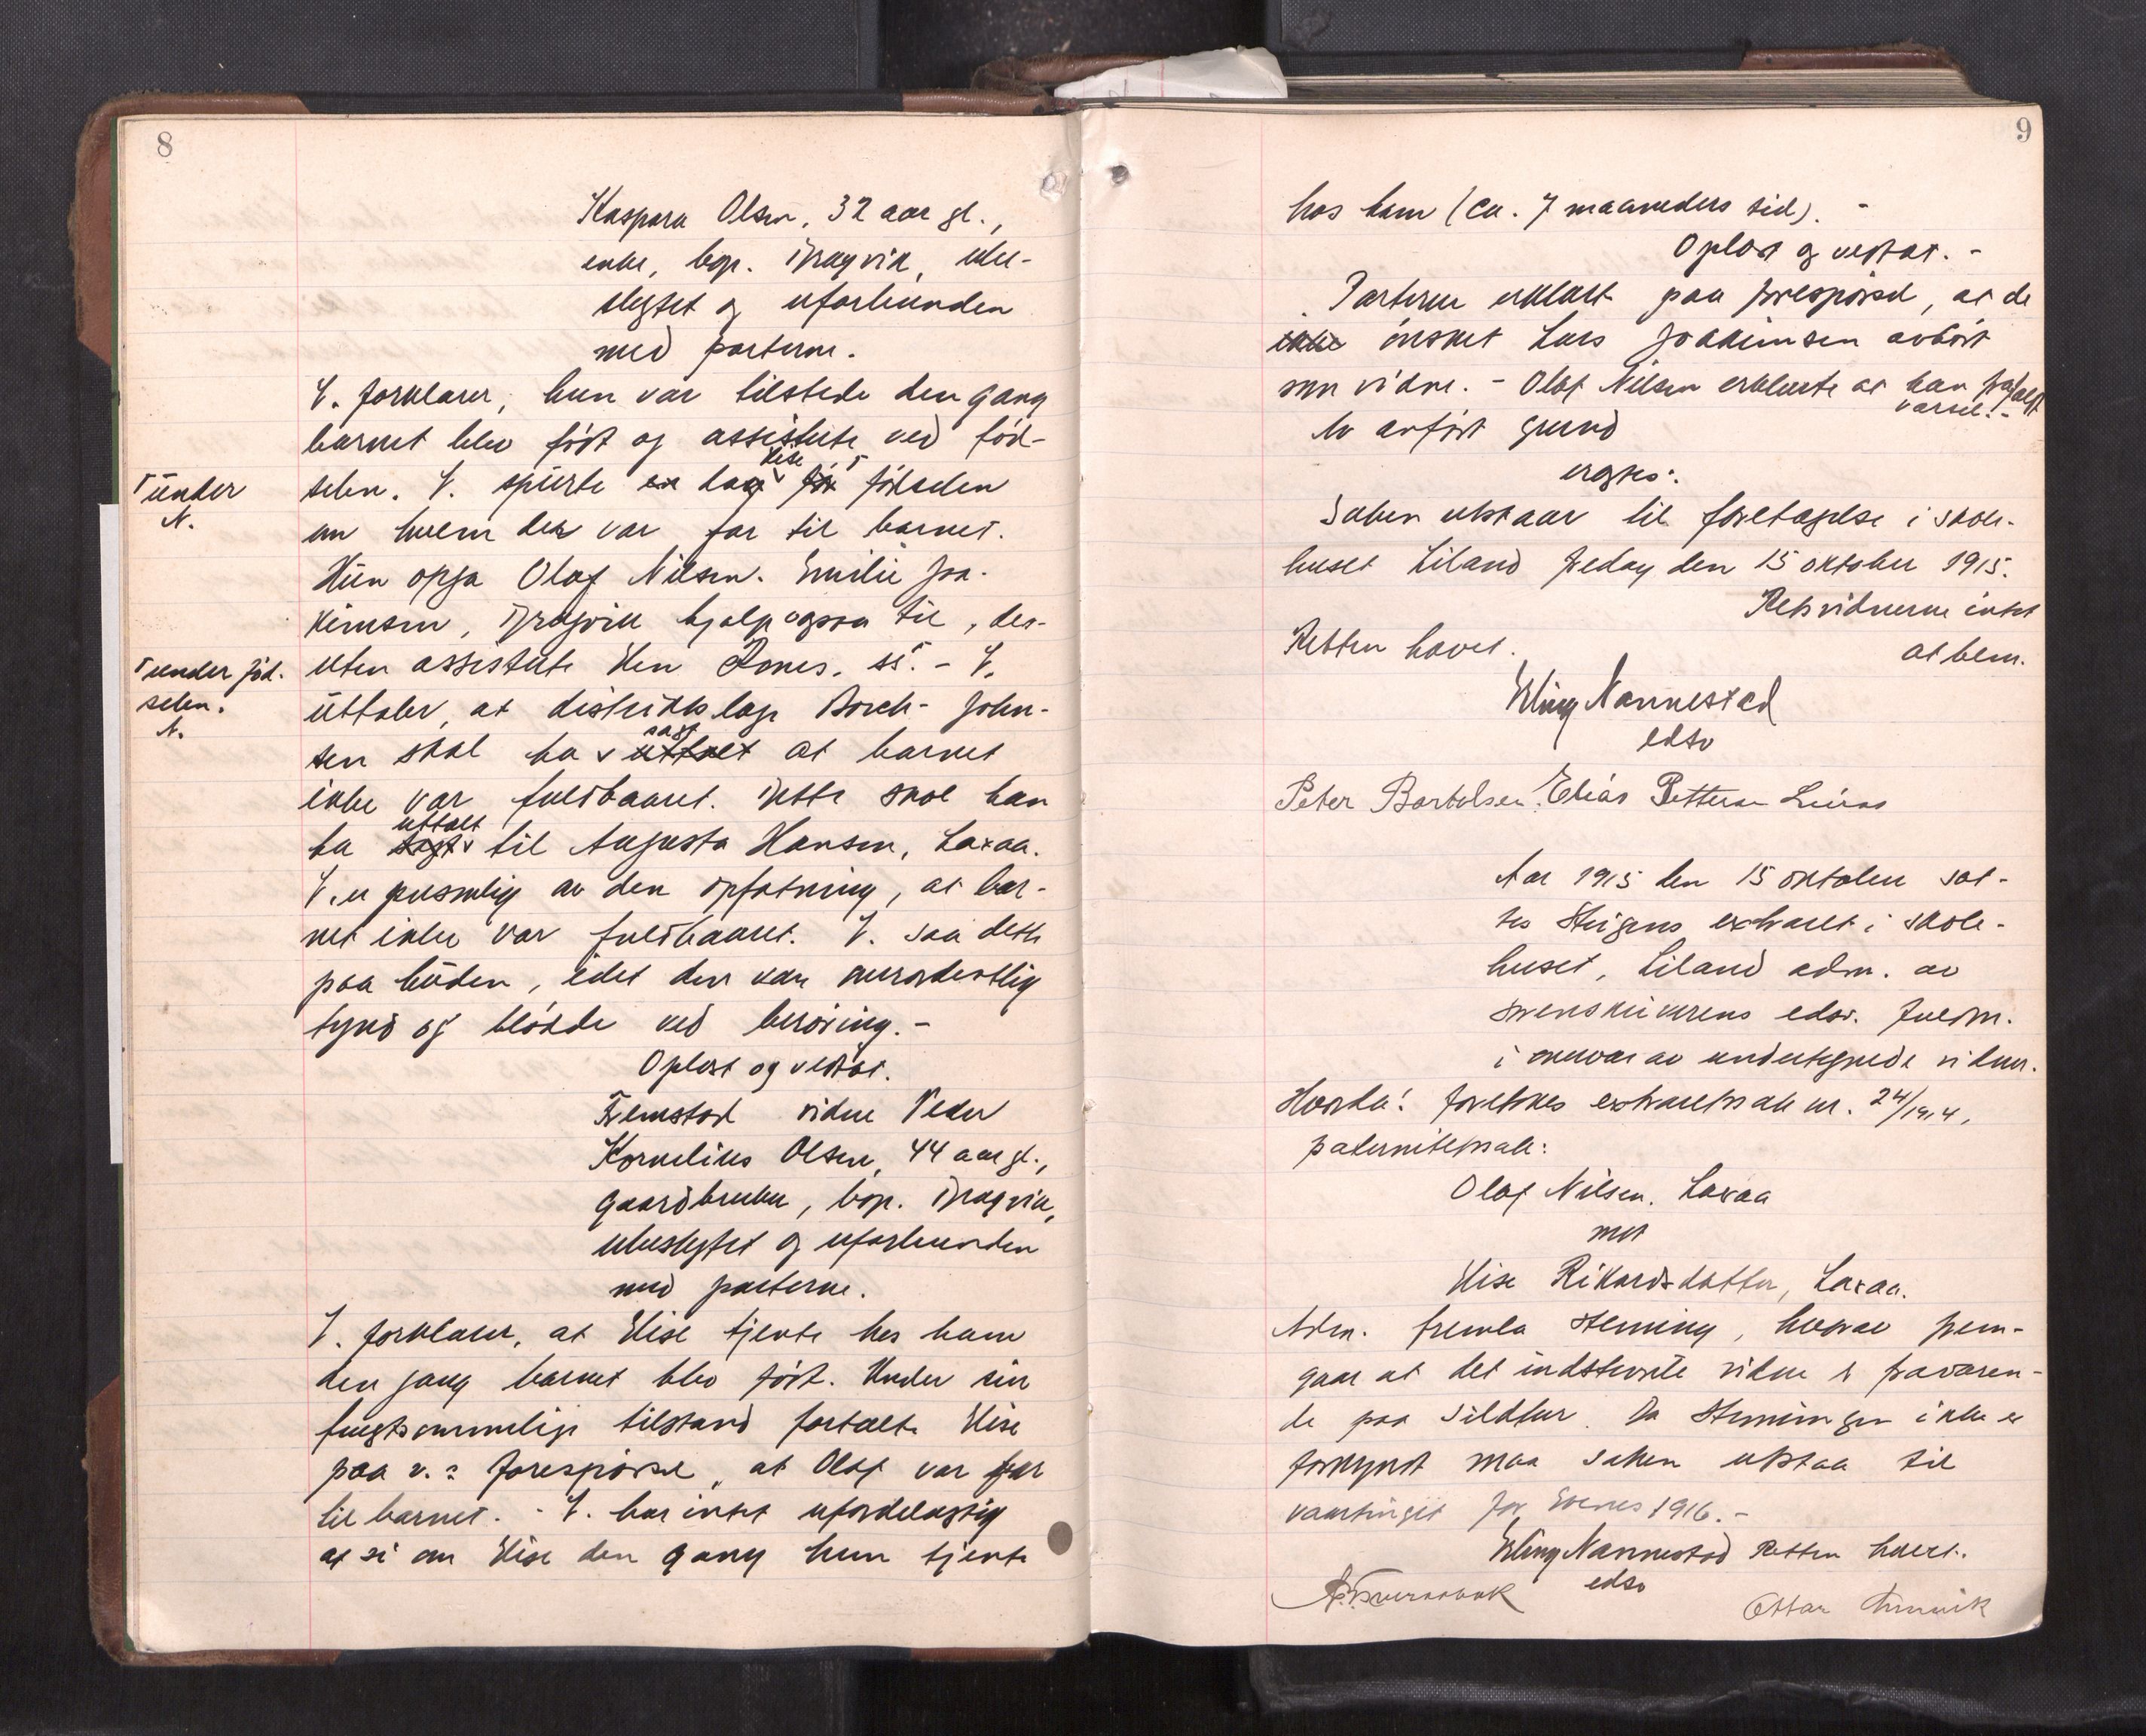 8
Kaspara Olsen, 32 aar gl.,
enke, bop. Dragvik, ube-
slegtet og uforbunden
med parterne.
V. forklarer, hun var tilstede den gang
barnet blev født og assisterte ved fød-
selen. V. spurte en dag Elise før fødselen
⸀under
N.
om hvem der var far til barnet.
Hun opga Olaf Nilsen. Emilie Joa-
kimsen, Dragvik hjalp ogsaa til, des-
uten assisterte Elen Rones. ⸀ - V.
⸀under fød-
selen.
N.
uttaler, at distriktslæge Borch-John-
sen skal ha sagt uttalt at barnet
ikke var fuldbaaret. Dette skal han
ha uttalt sagt til Augusta Hansen, Laxaa.
V. er personlig av den opfatning, at bar-
net ikke var fuldbaaret. V. saa dette
paa huden, idet den var overordentlig
tynd og blødde ved berøring. -
Oplæst og vedtat.
Fremstod vidne Peder
Kornelius Olsen, 44 aar gl.,
gaardbruker, bop. Dragvik,
ubeslegtet og uforbunden
med parterne.
V. forklarer, at Elise tjente hos ham
den gang barnet blev født. Under sin
frugtsommelige tilstand fortalte Elise
paa v.s forespørsel, at Olaf var far
til barnet. - V. har intet ufordelagtig
at si om Elise den gang hun tjente
9
hos ham (ca. 7 maaneders tid). -
Oplæst og vedtat. -
Parterne erklært paa forespørsel, at de
ikke ønsket Lars Joakimsen avhørt
som vidne. - Olaf Nilsen erklærte at han frafaldt
varsel. -
Av anført grund
avgtes:
Saken utstaar til foretagelse i skole-
huset Liland fredag den 15 oktober 1915.
Retsvidnerne intet
at bem.
Retten hævet.
Erling Nannestad
edsv
Peter Bartolsen. Elias Pettersen Leiros
Aar 1915 den 15 oktober sat-
tes Steigens extraret i skole-
huset, Liland adm. av
sorenskriverens edsv. fuldm.
i overvær av undertegnede vidner.
Hvorda: foretokes extraretssak nr. 24/1914,
paternitetssak:
Olaf Nilsen. Laxaa
mot
Elise Rikardsdatter, Laxaa.
Adm. fremla stevning, hvorav frem-
gaar at det indstevnte vidne er fraværen-
de paa sildtur. Da stevningen ikke er
forkyndt maa saken utstaa til
vaartinget for Evenes 1916. -
Erling Nannestad Retten hævet.
edsv
Ottar